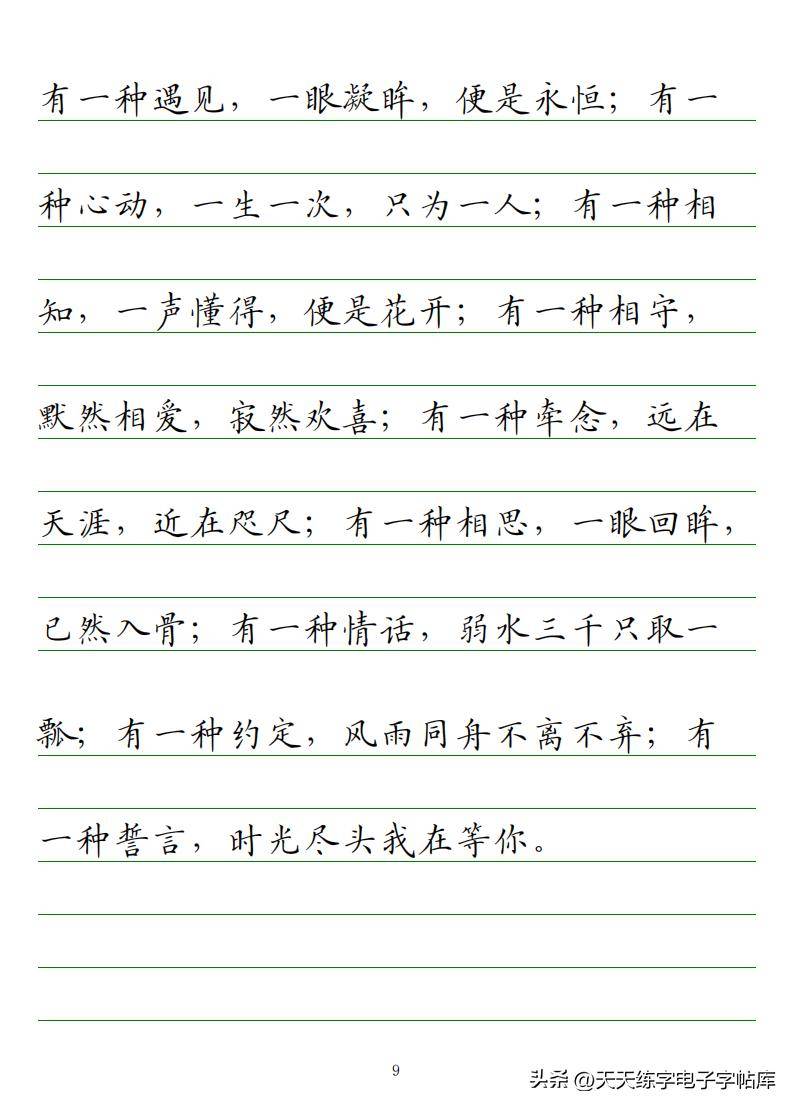 有一种遇见，一眼凝眸，便是永恒；有一
种心动，一生一次，只为一人；有一种相
知，一声懂得，便是花开；有一种相守，
默然相爱，寂然欢喜；有一种牵念，远在
天涯，近在咫尺；有一种相思，一眼回眸，
已然入骨；有一种情话，弱水三千只取一
瓢；有一种约定，风雨同舟不离不弃；有
一种誓言，时光尽头我在等你。
9
头条 @天天练字电子字帖库